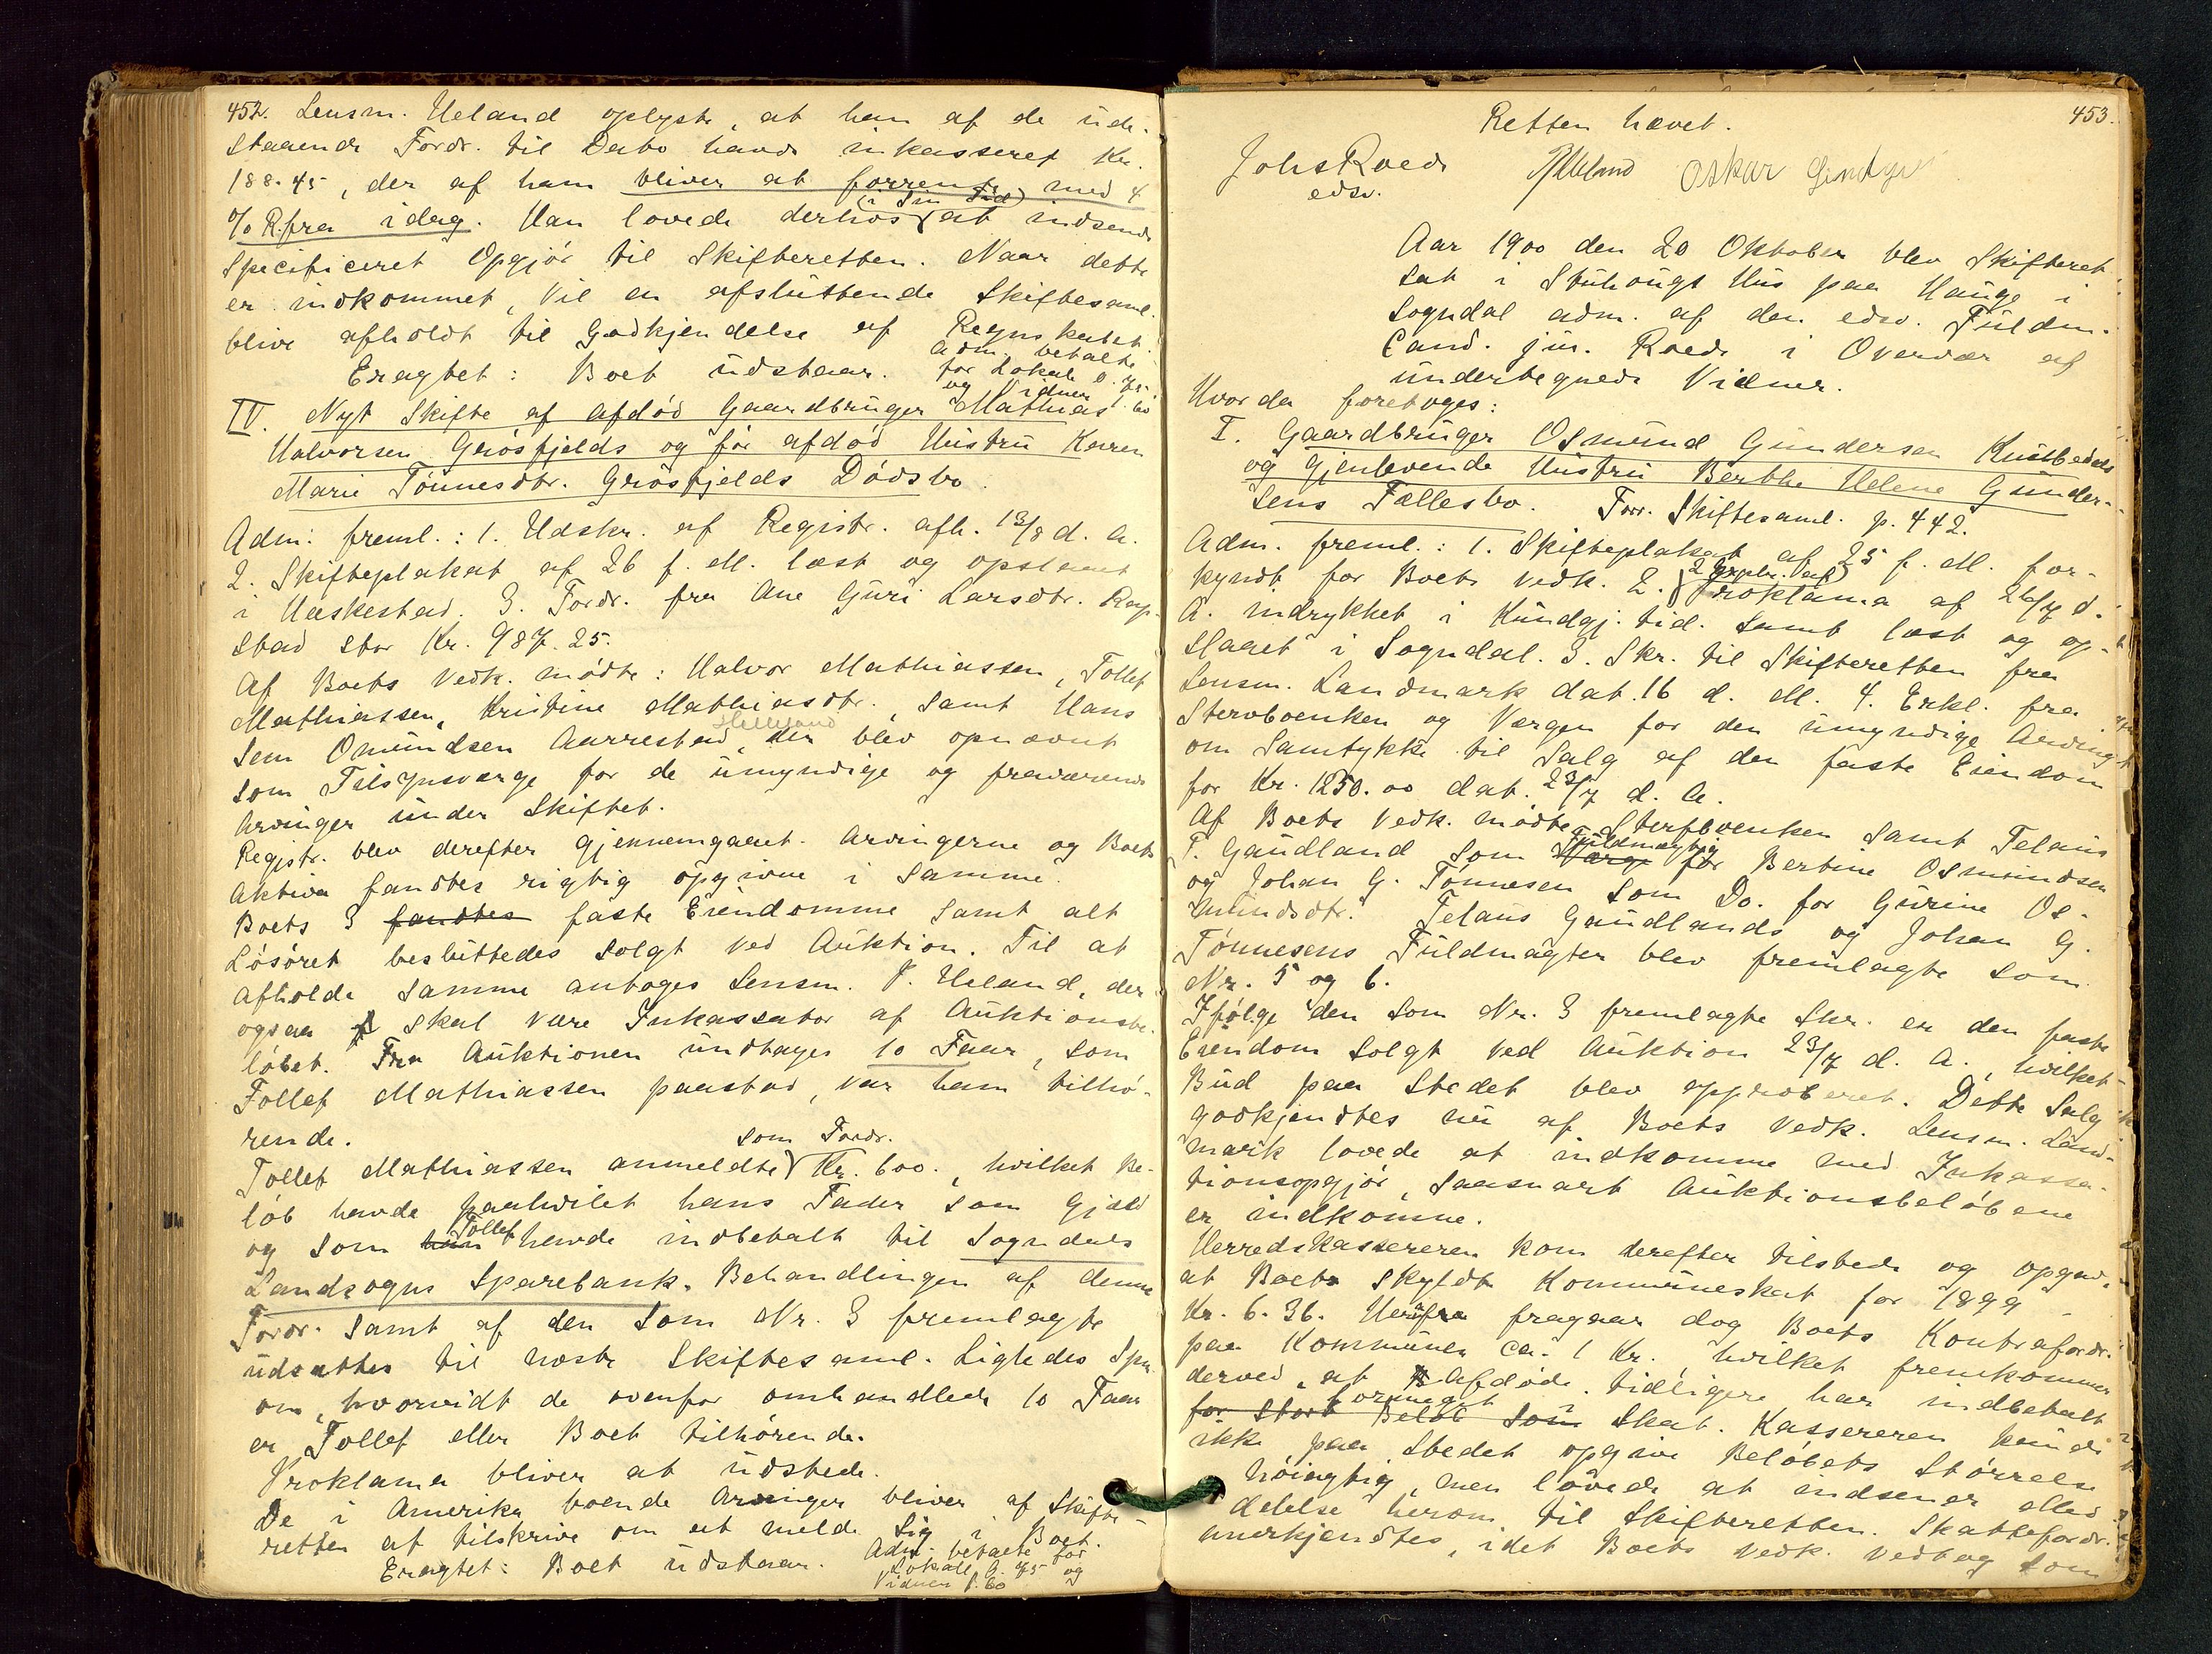 452. Lensm. Ueland oplyste, at han af de ude-
staaende Fordr. til Dato havde inkasseret Kr.
188.45, der af ham bliver at forrente med 4
% R. fra idag. Han lovede derhos (i sin Tid) at indsende
specificeret Opgjör til Skifteretten. Naar dette
er indkommet, vil en afsluttende Skiftesaml.
blive afholdt til Godkjendelse af Regnskabet.
Eragtet: Boet udstaar. Adm. betalte
for Lokale 0.75
og Vidner 1.60
IV. Nyt Skifte af afdöd Gaardbruger Mathias
Halvorsen Grösfjelds og för afdöd Hustru Karen
Marie Tönnesdtr. Grösfjelds Dödsbo.
Adm. freml.: 1. Udskr. af Registr. afh. 13/8 d. A.
2. Skifteplakat af 26 f. M. læst og opslaaet
i Heskestad. 3. Fordr. fra Ane Guri Larsdtr. Rap-
stad stor Kr. 987.25.
Af Boets Vedk. mödte: Halvor Mathiassen, Tollef
Mathiassen, Kristine Mathiasdtr., samt Hans
Sem Omundsen Aarrestad Helleland, der blev opnævnt
som Tilsynsværge for de umyndige og fraværende
Arvinger under Skiftet.
Registr. blev derefter gjennemgaaet. Arvingerne og Boets
Aktiva fandtes rigtig opgivne i samme.
Boets 3 fandtes faste Eiendomme samt alt
Lösöret besluttedes solgt ved Auktion. Til at
afholde samme antoges Lensm. P. Ueland, der
ogsaa skal være Inkassator af Auktionsbe-
löbet. Fra Auktionen undtages 10 Faar, som
Tollef Mathiassen paastod, var ham tilhö-
rende.
Tollef Mathiassen anmeldte som Fordr. Kr. 600., hvilket Be-
löb havde paahvilet hans Fader som Gjæld
og som han Tollef havde indbetalt til Sogndals
Landsogns Sparebank. Behandlingen af denne
Fordr. samt af den som Nr. 3 fremlagte
udsattes til næste Skiftesaml. Ligledes Spm.
om, hvorvidt de ovenfor omhandlede 10 Faar
er Tollef eller Boet tilhörende.
Proklama bliver at udstede.
De i Amerika boende Arvinger bliver af Skifte-
retten at tilskrive om at melde sig i Boet.
Eragtet: Boet udstaar. Adm. betalte for
Lokale 0.75 og
Vidner 1.60
453.
Retten hævet.
Johs Roede
edsv.
PUeland Oskar
Aar 1900 den 20 Oktober blev Skifteret
sat i Stuhaugs Hus paa Hauge i
Sogndal adm. af den edsv. Fuldm.
Cand. jur. Roede i Overvær af
undertegnede Vidner.
Hvorda foretoges:
I. Gaardbruger Osmund Gundersen Kvitbedals
og gjenlevende Hustru Berthe Helene Gunder-
sens Fællesbo. Forr. Skiftesaml. p. 442.
Adm. freml.: 1. Skifteplakat af 25 f. M. for-
kyndt for Boets Vedk. 2. (2 Explr. af) Proklama af 26/7 d.
A. indrykket i Kundgj. tid. samt læst og op-
slaaet i Sogndal. 3. Skr. til Skifteretten fra
Lensm. Landmark dat. 16 d. M. 4. Erkl. fra
Stervboenken og Værgen for den umyndige Arving
om Samtykke til Salg af den faste Eiendom
for Kr. 1250.00 dat. 23/7 d. A.
Af Boets Vedk. mödte Stervboenken samt Telaus
T. Gaudland som Værge Fuldmægtig for Bertine Osmundsen
og Johan G. Tönnesen som Do. for Gurine Os-
mundsdtr. Telaus Gaudlands og Johan G.
Tönnesens Fuldmagter blev fremlagte som
Nr. 5 og 6.
Ifölge den som Nr. 3 fremlagte Skr. er den faste
Eiendom solgt ved Auktion 23/7 d. A., hvilket
Bud paa Stedet blev approberet. Dette Salg
godkjendtes nu af Boets Vedk. Lensm. Land-
mark lovede at indkomme med Inkassa-
tionsopgjör, saasnart Auktionsbelöbene
er indkomne.
Herredskassereren kom derefter tilstede og opgav,
at Boet skyldte Kommuneskat for 1899
Kr. 6.36. Herfra fragaar dog Boets Kontrafordr.
paa Kommunen ca. 1 Kr., hvilket fremkommer
derved, at Afdöde tidligere har indbetalt
for stort Belöb som foruneget i Skat. Kassereren kunde
ikke paa Stedet opgive Belöbets Störrelse
höiagtig, men lovede at indsende
delelse herom til Skifteretten. Skattefordr.
anerkjendtes, idet Boets Vedk. vedtog som